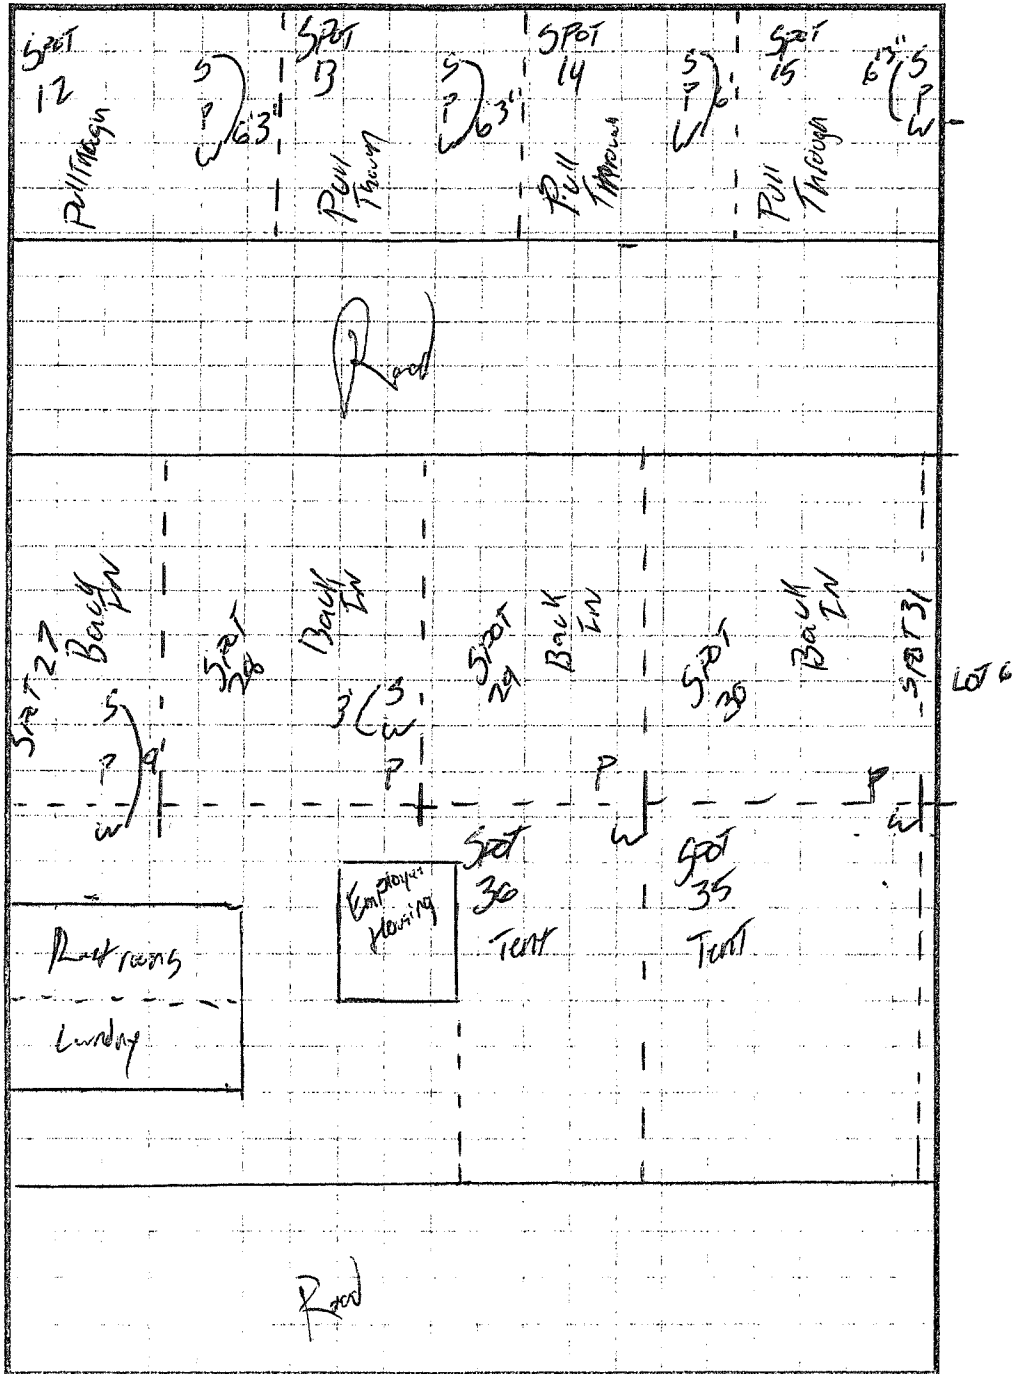 SPOT
12
Pull Through
S
P
W
6'3"
SPOT
13
Pull
Through
S
P
W
6'3"
SPOT
14
Pull
Through
S
P
W
6'
SPOT
15
Pull
Through
6'3"
S
P
W
Road
SPOT 27
Back
IN
S
P
W
9'
SPOT
28
Back
IN
3'
S
W
P
SPOT
29
Back
IN
P
W
SPOT
30
Back
IN
P
W
SPOT 31
LOT 6
Employee
Housing
SPOT
36
Tent
SPOT
35
Tent
Restrooms
Laundry
Road